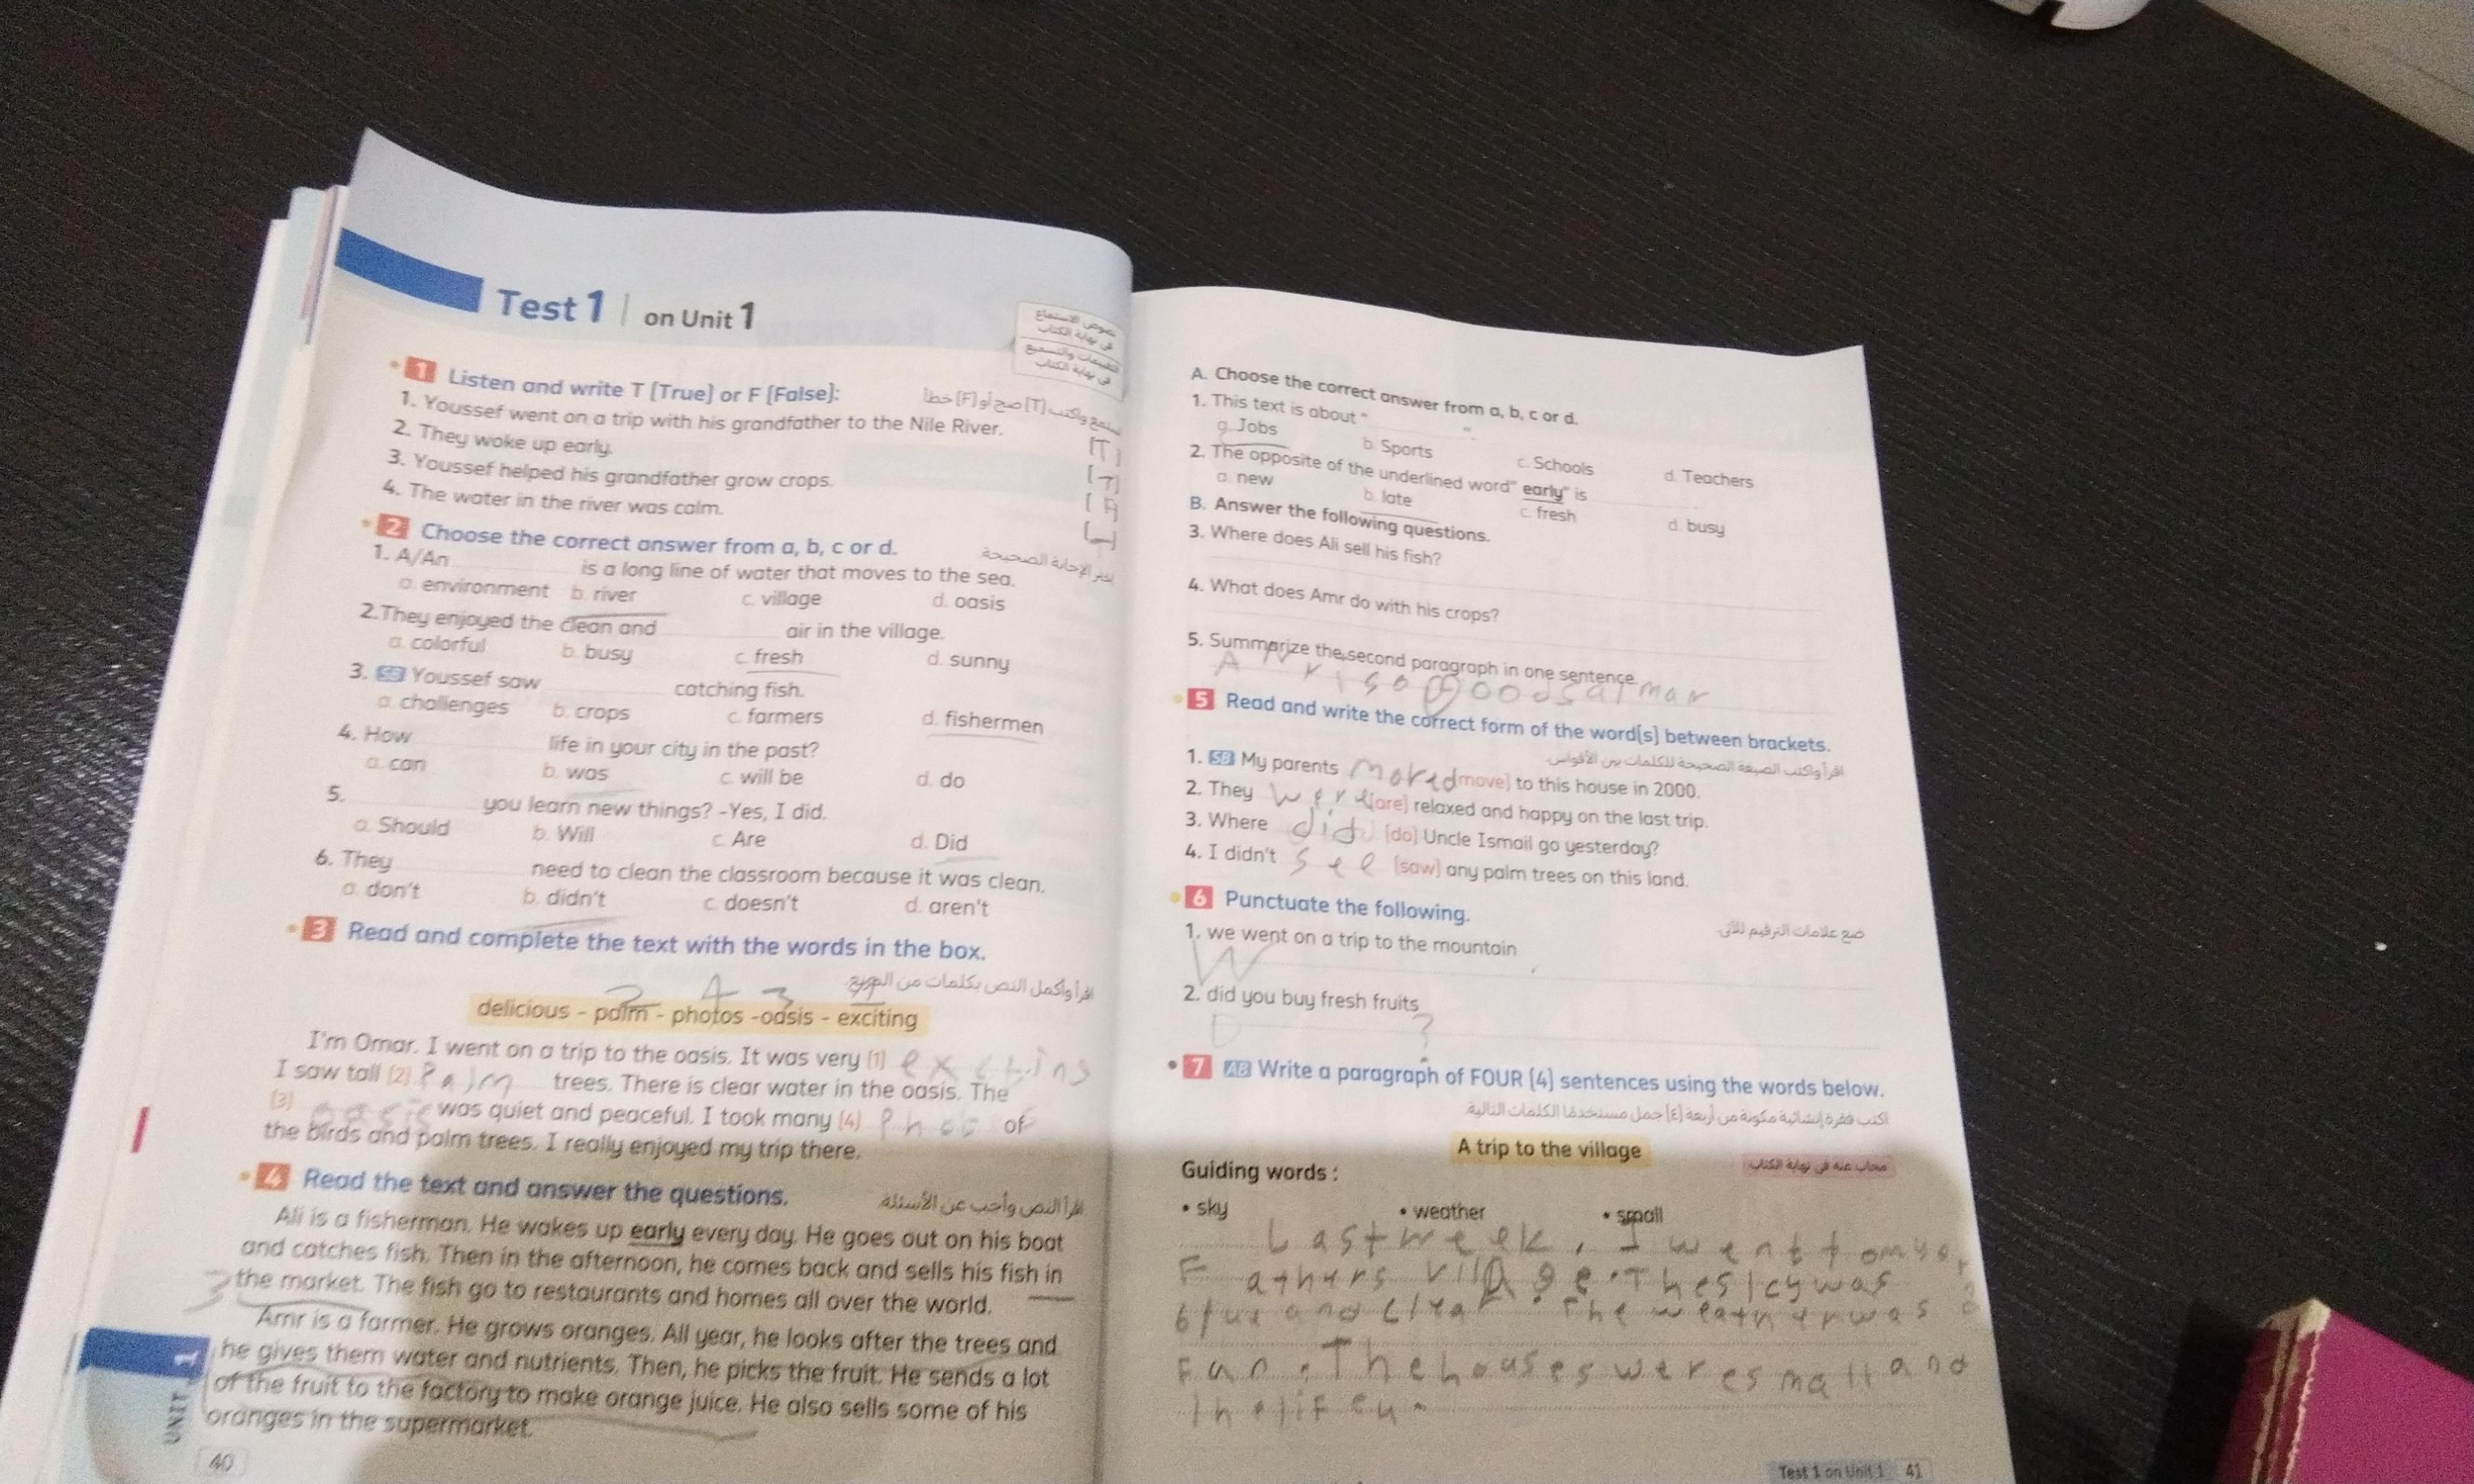 Test 1 | on Unit 1
نصوص الاستماع
في نهاية الكتاب
في نهاية الكتاب
1 Listen and write T [True] or F [False]:
استمع واكتب [T] صح أو [F] خطأ
1. Youssef went on a trip with his grandfather to the Nile River. [T]
2. They woke up early. [T]
3. Youssef helped his grandfather grow crops. [F]
4. The water in the river was calm.
2 Choose the correct answer from a, b, c or d.
اختر الإجابة الصحيحة
1. A/An ______ is a long line of water that moves to the sea.
a. environment b. river c. village d. oasis
2. They enjoyed the clean and ______ air in the village.
a. colorful b. busy c. fresh d. sunny
3. SB Youssef saw ______ catching fish.
a. challenges b. crops c. farmers d. fishermen
4. How ______ life in your city in the past?
a. can b. was c. will be d. do
5. ______ you learn new things? -Yes, I did.
a. Should b. Will c. Are d. Did
6. They ______ need to clean the classroom because it was clean.
a. don't b. didn't c. doesn't d. aren't
3 Read and complete the text with the words in the box.
اقرأ وأكمل النص بكلمات من المربع
2 4 3
delicious - palm - photos -oasis - exciting
I'm Omar. I went on a trip to the oasis. It was very [1]
I saw tall [2] Palm trees. There is clear water in the oasis. The
[3] oasis was quiet and peaceful. I took many [4] of
the birds and palm trees. I really enjoyed my trip there.
4 Read the text and answer the questions.
اقرأ النص وأجب عن الأسئلة
Ali is a fisherman. He wakes up early every day. He goes out on his boat
and catches fish. Then in the afternoon, he comes back and sells his fish in
3 the market. The fish go to restaurants and homes all over the world.
Amr is a farmer. He grows oranges. All year, he looks after the trees and
he gives them water and nutrients. Then, he picks the fruit. He sends a lot
of the fruit to the factory to make orange juice. He also sells some of his
oranges in the supermarket.
UNIT 1
40
A. Choose the correct answer from a, b, c or d.
1. This text is about " ______ ".
a. Jobs b. Sports c. Schools d. Teachers
2. The opposite of the underlined word" early" is
a. new b. late c. fresh d. busy
B. Answer the following questions.
3. Where does Ali sell his fish?
4. What does Amr do with his crops?
5. Summarize the second paragraph in one sentence.
5 Read and write the correct form of the word[s] between brackets.
اقرأ واكتب الصيغة الصحيحة للكلمات بين الأقواس
1. SB My parents moved [move] to this house in 2000.
2. They were [are] relaxed and happy on the last trip.
3. Where did [do] Uncle Ismail go yesterday?
4. I didn't see [saw] any palm trees on this land.
6 Punctuate the following.
ضع علامات الترقيم للآتي
1. we went on a trip to the mountain
W
2. did you buy fresh fruits
D ?
7 AB Write a paragraph of FOUR [4] sentences using the words below.
اكتب فقرة إنشائية مكونة من أربعة [٤] جمل مستخدمًا الكلمات التالية
A trip to the village
مجاب عنه في نهاية الكتاب
Guiding words :
• sky • weather • small
Last week, I went to
Fathers village. The sky was
blue and clear. The weather was
Fan. The houses were small and
Test 1 on Unit 1 41